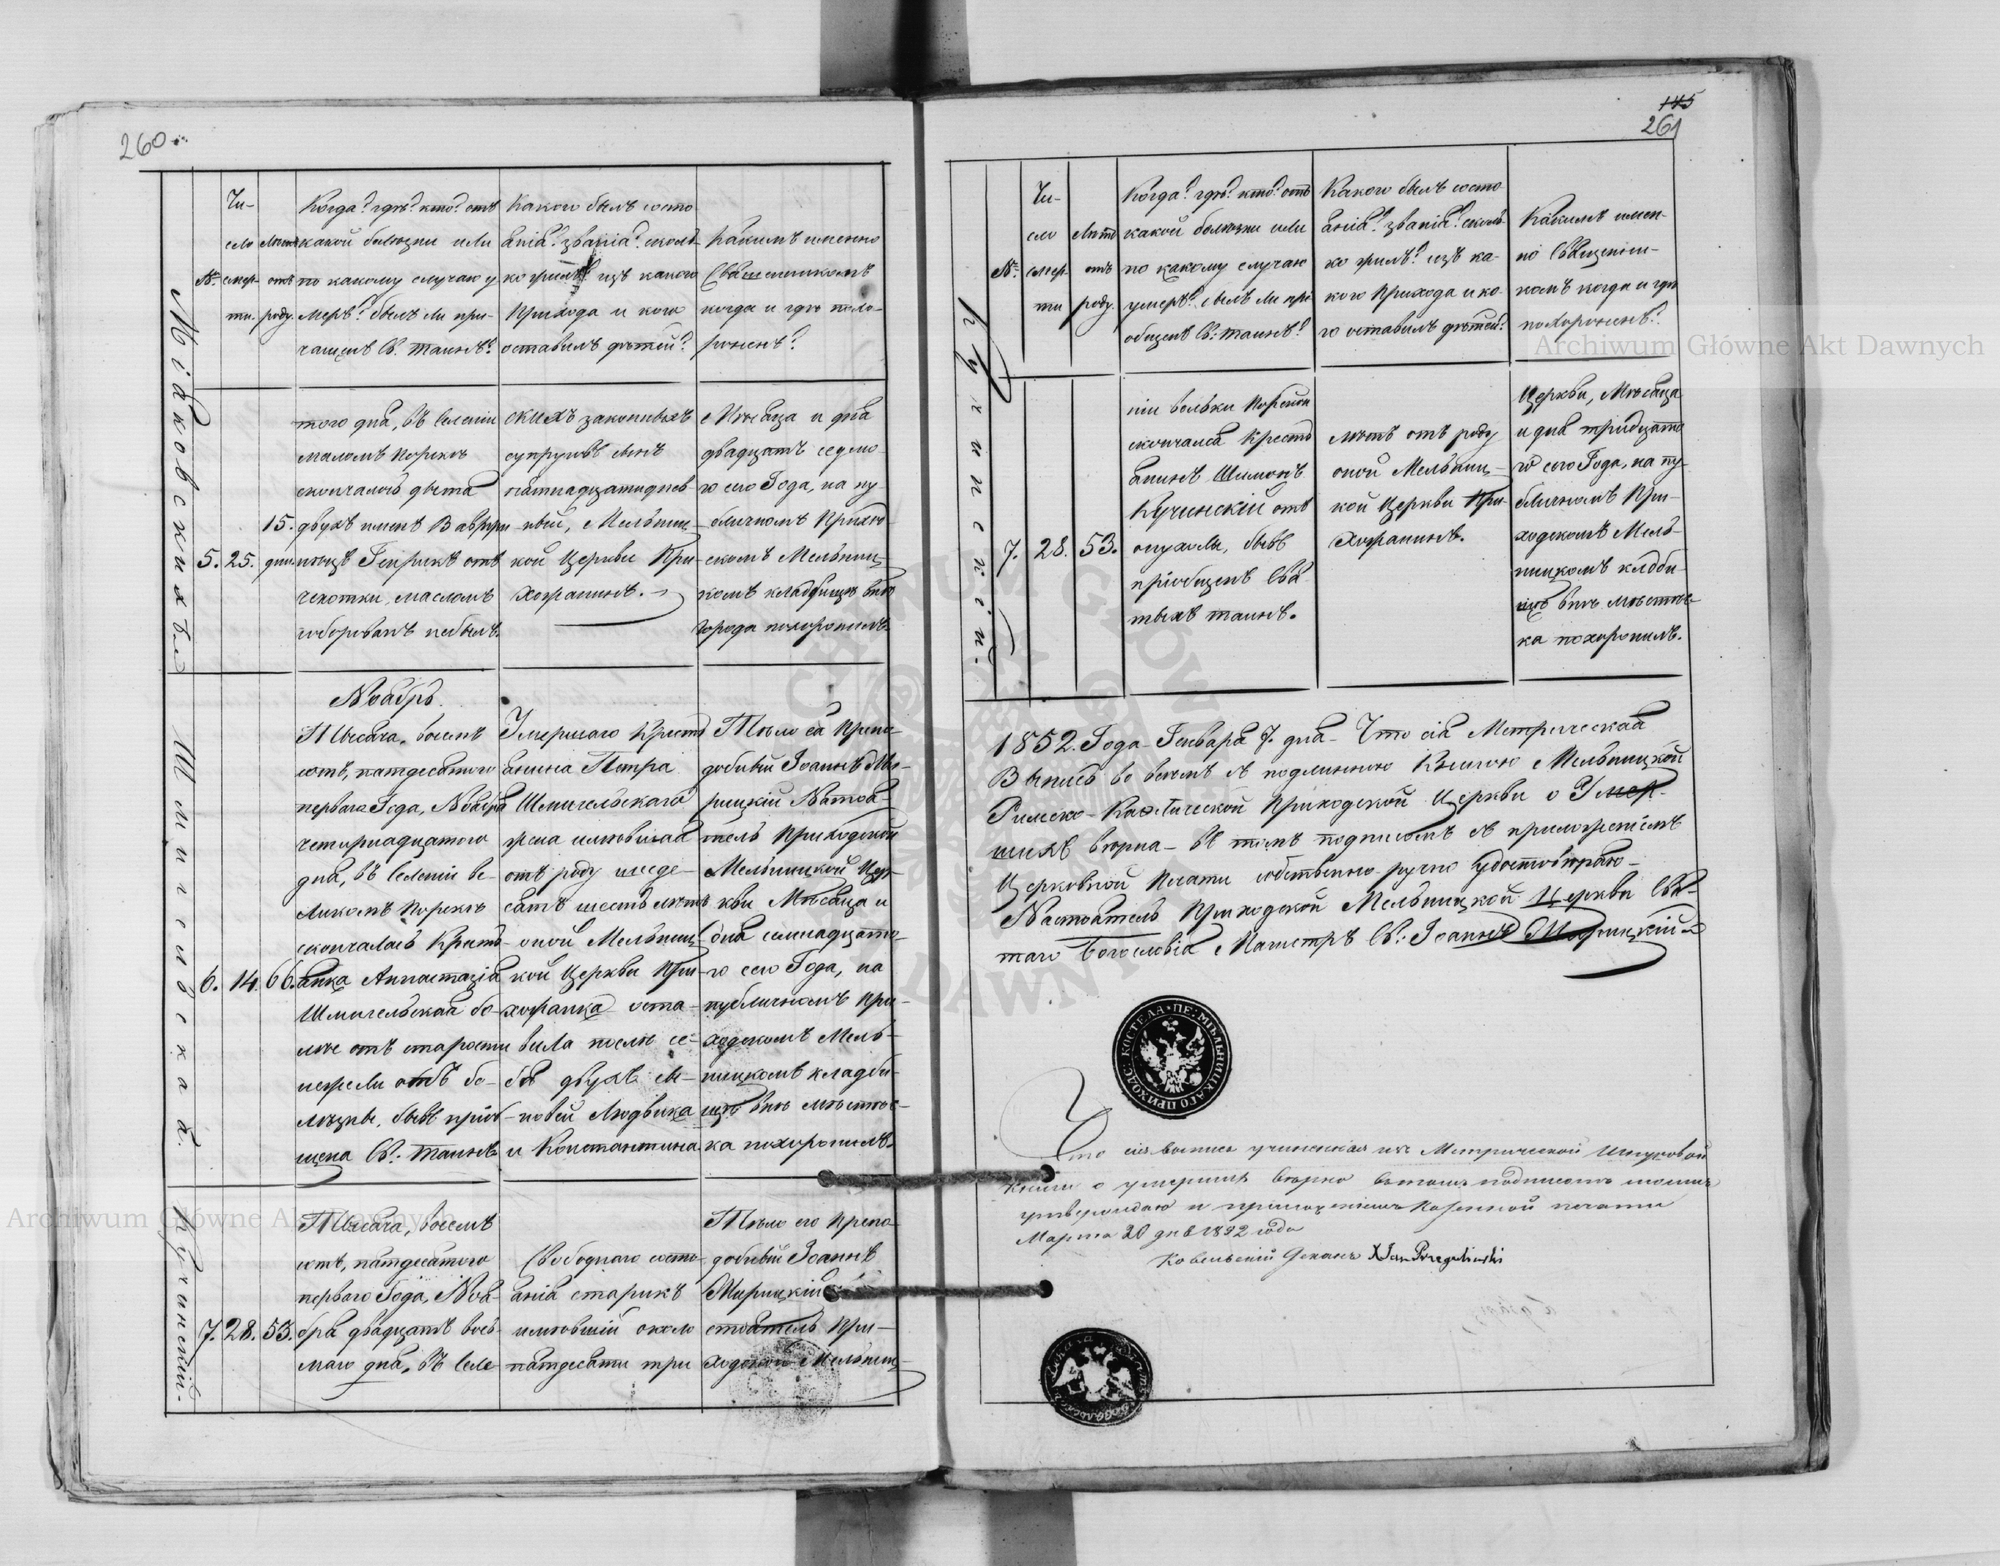 260
Міаковскихъ
Шмигельская.
Кучинскій.
№.
Чи-
сло
смер-
ти.
Лѣта
отъ
роду.
Когда? гдѣ? кто? отъ
какой болѣзни или
по какому случаю у
меръ? былъ ли при-
чащенъ Св. Таинъ?
Какого былъ состо
янія? званія? сколь-
ко жилъ? изъ какого
Прихода и кого
оставилъ дѣтей?
Какимъ именно
Священникомъ
когда и гдѣ похо-
роненъ?
5.
25.
15.
дни
того дня, въ Селеніи
маломъ Порскъ
скончалось дитя
двухъ именъ
Генрикъ отъ
чехотки, масломъ
соборованъ небылъ.
скихъ законныхъ
супруговъ сынъ
пятнадцатиднев-
ный, Мельниц-
кой Церкви При-
хожанинъ.
Мѣсяца и дня
двадцать седмо-
го сего Года, на пу-
бличномъ Приход-
скомъ Мельниц-
комъ кладбищѣ внѣ
города похоронилъ.
Ноябрь.
6.
14.
66.
Тысяча, восемъ
сотъ, пятдесятого
перваго Года, Ноября
четырнадцатого
дня, въ Селеніи ве-
ликомъ Порскъ
скончалась Крестья-
янка Анастазія
Шмигельская бо-
лѣе отъ старости
нежели отъ бо-
лѣзны, бывъ пріоб-
щена Св: Таинъ.
Умершаго Кресть
янина Петра
Шмигельскаго
жена имѣвшая
отъ роду шеде-
сятъ шесть лѣтъ
оной Мельниц-
кой Церкви При-
хожанка оста-
вила послѣ се-
бя двухъ сы-
новей Людвика
и Константина
Тѣло ея Препо-
добный Іоаннъ Ми-
рицкій Настоя-
тель Приходской
Мельницкой Цер-
кви Мѣсяца и
дня семнадцато-
го сего Года, на
публичномъ При-
ходскомъ Мель-
ницкомъ кладби-
щѣ внѣ мѣстеч-
ка похоронилъ.
7.
28.
53.
Тысяча, восемъ
сотъ, пятдесятого
перваго Года, Ноя-
бря двадцать вось-
маго дня, въ Селе
Свободнаго состо-
янія старикъ
имѣвшій около
пятдесяти три
Тѣло его Препо-
добный Іоаннъ
Мирицкій
стоятель При-
ходской Мельниц-
145
261
Кучинскій.
№.
Чи-
сло
смер-
ти
Лѣта
отъ
роду.
Когда? гдѣ? кто? отъ
какой болѣзни или
по какому случаю
умеръ? былъ ли прі
общенъ Св: Таинъ?
Какого былъ состо
янія? званія? сколь-
ко жилъ? изъ ка-
кого Прихода и ко-
го оставилъ дѣтей?
Какимъ имен-
но Священни-
комъ когда и гдѣ
похороненъ?
7.
28.
53.
ніи вельки Порскъ
скончался Кресть
янинъ Шимонъ
Кучинскій отъ
опухолы, бывъ
пріобщенъ Свя
тыхъ таинъ.
лѣтъ отъ роду
оной Мельниц-
кой Церкви При-
хожанинъ.
Церкви, Мѣсяца
и дня тридцато
го сего Года, на пу-
бличномъ При-
ходскомъ Мель-
ницкомъ кладби-
щѣ внѣ мѣстеч-
ка похоронилъ.
1852. Года Генваря 7. дня - Что сія Метрическая
Выпись во всемъ съ подлинною Книгою Мельницкой
Римско-Каѳолической Приходской Церкви о Умер-
шихъ вѣрна - въ томъ подписомъ съ приложеніемъ
Церковной Печати собственно-ручно Удостовѣряю-
Настоятель Приходской Мельницкой Церкви Свя-
таго Богословія Магистръ Св: Іоаннъ Мирицкій
ПРИХОДС. КОСТЕЛА МѢЛЬНИЦКАГО
Что сія выпись учиненная изъ Метрической Шнуровой
книги о умершихъ вѣрно въ томъ подписомъ моимъ
утверждаю и приложеніемъ Казенной печати
Марта 20 дня 1852 года
Ковельскій Деканъ X Jan
Archiwum Główne Akt Dawnych
Archiwum Główne Akt Dawnych